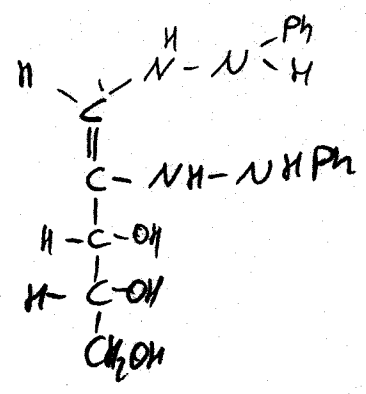 H
Ph
H N – N H
C
||
C – NH – NHPh
H – C – OH
H – C – OH
CH₂OH